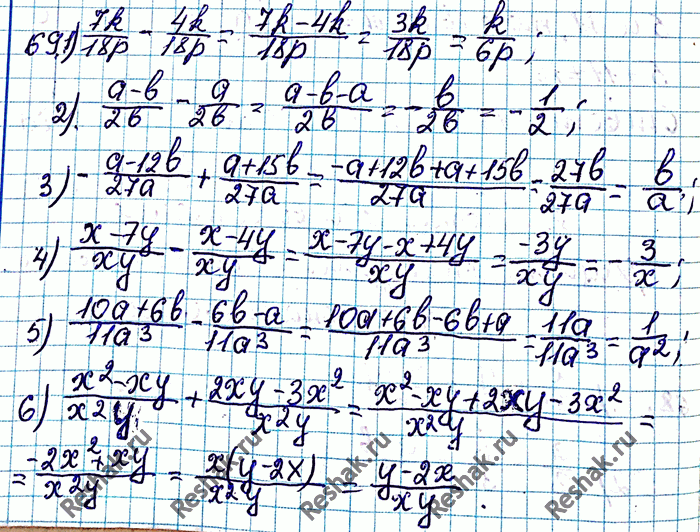 69.1) 7k/18p - 4k/18p = 7k-4k/18p = 3k/18p = k/6p;
2). a-b/2b - a/2b = a-b-a/2b = -b/2b = -1/2;
3) -a-12b/27a + a+15b/27a = -a+12b+a+15b/27a = 27b/27a = b/a;
4) x-7y/xy - x-4y/xy = x-7y-x+4y/xy = -3y/xy = -3/x;
5) 10a+6b/11a³ - 6b-a/11a³ = 10a+6b-6b+a/11a³ = 11a/11a³ = 1/a²;
6) x²-xy/x²y + 2xy-3x²/x²y = x²-xy+2xy-3x²/x²y =
= -2x²+xy/x²y = x(y-2x)/x²y = y-2x/xy.
Reshak.ru Reshak.ru Reshak.ru Reshak.ru